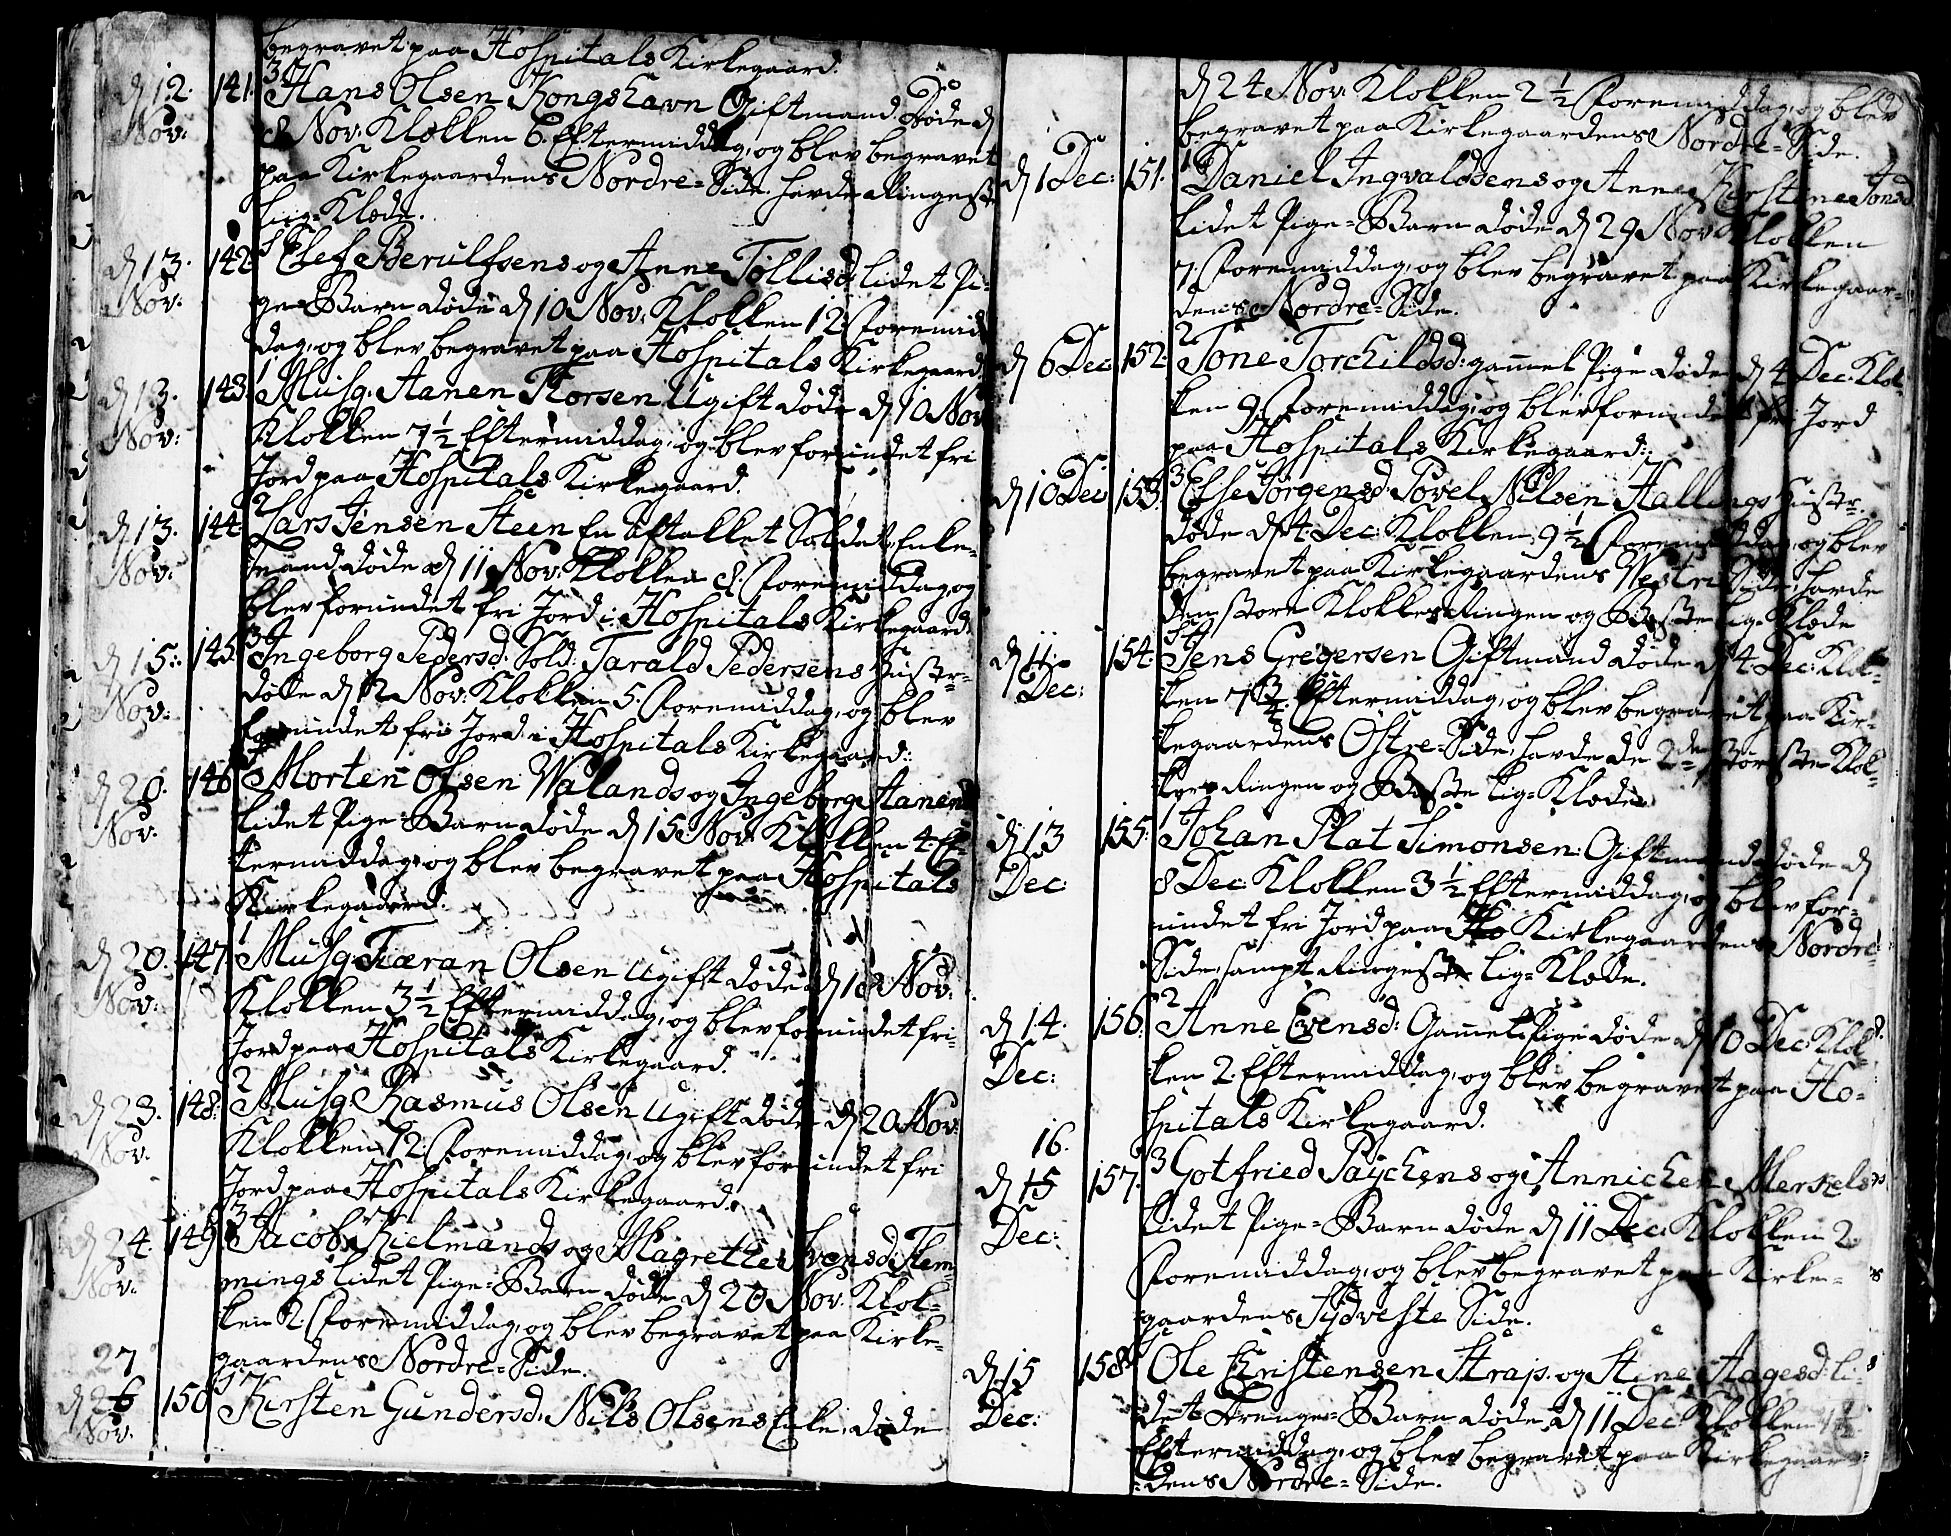 begravet paa Hospitals Kirkegaard.
d 12. Nov: 141. 3 Hans Olsen Kongshavn Giftmand Døde d
8 Nov: Klokken 6. Eftermiddag, og blev begravet
paa Kirkegaardens Nordre-Side. havde Ringeste
Liig-Klæde.
d 13. Nov: 142 Elef Berulfsens og Anne Tollisd: lidet Pi-
ge-Barn døde d 10 Nov: Klokken 12. Foremid-
dag, og blev begravet paa Hospitals Kirkegaard
d 13. Nov: 143. 1 Musq. Aanen Torsen Ugift døde d 10 Nov
Klokken 7½ Eftermiddag, og blev forundet fri
Jord paa Hospitals Kirkegaard.
d 13. Nov: 144 2 Lars Jensen Steen En aftakket Soldat, Enke-
mand døde d 11 Nov: Klokken 8. Foremiddag, og
blev forundet fri Jord i Hospitals Kirkegaard.
d 15. Nov: 145. 3 Ingeborg Pedersd: Sold: Tarald Pedersens Hustr-
døde d 12 Nov: Klokken 5. Foremiddag, og blev
forundet fri Jord i Hospitals Kirkegaard:
d 20. Nov: 146 Morten Olsen Walands og Ingeborg Aanensd
lidet Pige-Barn døde d 15 Nov: Klokken 4. Ef-
termiddag, og blev begravet paa Hospitals
Kirkegaard.
d 20. Nov: 147 1 Musq. Tiæran Olsen Ugift døde d 18 Nov:
Klokken 3½ Eftermiddag, og blev forundet fri-
Jord paa Hospitals Kirkegaard.
d 23. Nov. 148: 2 Musq. Rasmus Olsen Ugift døde d 20 Nov:
Klokken 12. Foremiddag, og blev forundet fri
Jord paa Hospitals Kirkegaard.
d 24. Nov. 149 3 Jacob Kielmands og Magrethe Svensd: Flem-
mings lidet Pige-Barn døde d 20 Nov. Klok-
ken 2. Foremiddag, og blev begravet paa Kirke-
gaardens Nordre-Side.
27
d 26 Nov. 150 Kirsten Gundersd: Nils Olsens Enke, døde
d 24 Nov: Klokken 2½ Foremiddag, og blev
begravet paa Kirkegaardens Nordre-Side.
d 1 Dec: 151. 1 Daniel Ingvaldsens og Anne Kirstine Tonsd
lidet Pige-Barn døde d 29 Nov: Klokken
7. Foremiddag, og blev begravet paa Kirkegaar-
dens Nordre-Side.
d 6 Dec 152. 2 Tone Torchildsd: gammel Pige døde d 4 Dec: Klok-
ken 9. Foremiddag, og blev forundet fri Jord
paa Hospitals Kirkegaard:
d 10 Dec 153. 3 Else Jørgensd: Povel Nilsen Hallings Hustr.
døde d 4 Dec: Klokken 9½ Foremiddag, og blev
begravet paa Kirkegaardens Westre Side. havde
den store Klokkes Ringen og Beste Lig-Klæde
d 11. Dec: 154. Jens Gregersen Giftmand døde d 4 Dec: Klok-
ken 7½ Eftermiddag, og blev begravet paa Kir-
kegaardens Østre-Side, havde de 2de største Klok-
kers Ringen og Beste Lig-Klæde.
d 13 Dec: 155. 1 Johan Plat Simonsen. Giftmand døde d
8 Dec: Klokken 3½ Eftermiddag, og blev for-
undet fri Jord paa Kirkegaardens Nordre
Side, sampt Ringeste Lig-Klæde.
d 14. Dec: 156. 2 Anne Evensd: Gammel Pige døde d 10 Dec: Klok-
ken 2. Eftermiddag, og blev begravet paa Ho-
spitals Kirkegaard.
16.
d 15 Dec: 157. 3 Gotfried Paÿchens og Annichen
lidet Pige-Barn døde d 11 Dec: Klokken 2.
Foremiddag, og blev begravet paa Kirke-
gaardens Sÿdveste Side.
d. 15 Dec: 158 Ole Christensen Straj. og Stine Aagesd: li-
det Drenge-Barn døde d 11 Dec: Klokken
Eftermiddag, og blev begravet paa Kirkegaar-
dens Nordre-Side.